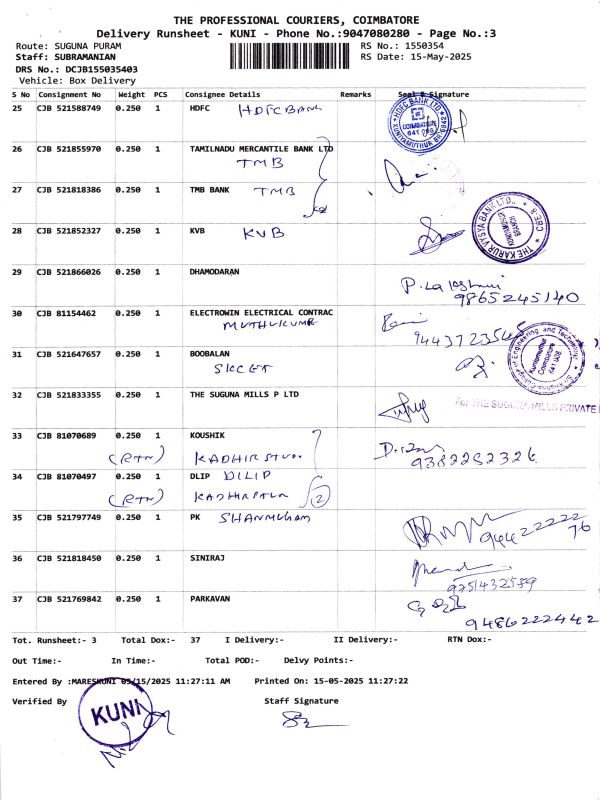 THE PROFESSIONAL COURIERS, COIMBATORE
Delivery Runsheet - KUNI - Phone No.:9047080280 - Page No.:3
Route: SUGUNA PURAM RS No.: 1550354
Staff: SUBRAMANIAN RS Date: 15-May-2025
DRS No.: DCJB155035403
Vehicle: Box Delivery
S No Consignment No Weight PCS Consignee Details Remarks Seal & Signature
25 CJB 521588749 0.250 1 HDFC HDFC BANK
HDFC BANK LTD.
COIMBATORE
641 008
26 CJB 521855970 0.250 1 TAMILNADU MERCANTILE BANK LTD
TMB
27 CJB 521818386 0.250 1 TMB BANK TMB
28 CJB 521852327 0.250 1 KVB KVB
THE KARUR VYSYA BANK LTD., CBE-8
BRANCH
29 CJB 521866026 0.250 1 DHAMODARAN
9865245140
30 CJB 81154462 0.250 1 ELECTROWIN ELECTRICAL CONTRAC
MUTHUKUMR
31 CJB 521647657 0.250 1 BOOBALAN
SKCET
College of Engineering and Technology
Kuniamuthur
Coimbatore
641 008
32 CJB 521833355 0.250 1 THE SUGUNA MILLS P LTD
For THE SUGUNA MILLS PRIVATE
33 CJB 81070689 0.250 1 KOUSHIK
(RTN) 9382282326
34 CJB 81070497 0.250 1 DLIP DILIP
(RTN) 2
35 CJB 521797749 0.250 1 PK SHANMUGAM
9442222276
36 CJB 521818450 0.250 1 SINIRAJ
37 CJB 521769842 0.250 1 PARKAVAN
9486222442
Tot. Runsheet:- 3 Total Dox:- 37 I Delivery:- II Delivery:- RTN Dox:-
Out Time:- In Time:- Total POD:- Delvy Points:-
Entered By :MARESKUNI 05/15/2025 11:27:11 AM Printed On: 15-05-2025 11:27:22
Verified By Staff Signature
KUNI